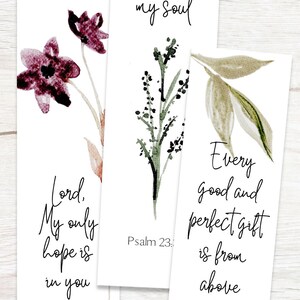 my soul
Psalm 23.
Lord,
My only
hope is
in you
Every
good and
perfect gift
is from
above